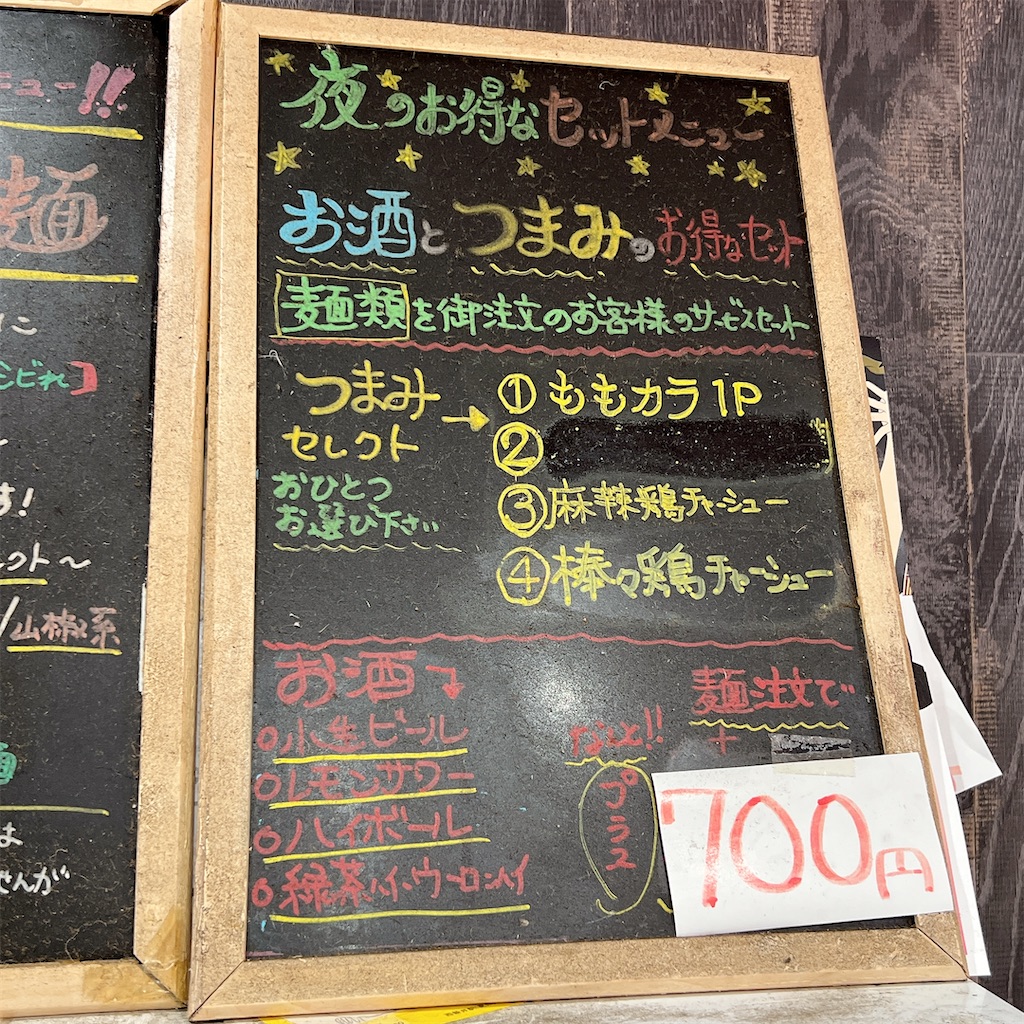 夜のお得なセットメニュー
お酒とつまみのお得なセット
麺類を御注文のお客様のサービスセット
つまみ
セレクト
おひとつ
お選び下さい
→
①ももカラ1P
②
③麻辣鶏チャーシュー
④棒々鶏チャーシュー
お酒
○小生ビール
○レモンサワー
○ハイボール
○緑茶ハイ・ウーロンハイ
なんと!!
プラス
麺注文で
+
700円
ニュー!!
麺
に
シビれ】
す!
クト〜
/山椒系
は
せんが